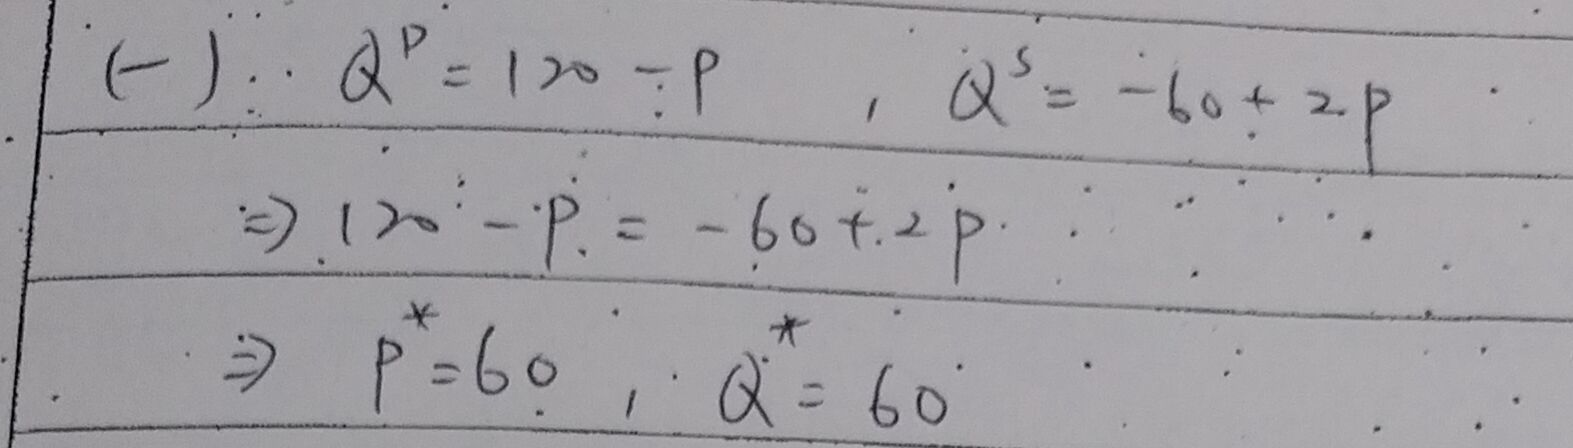 (一) Qᴰ = 120 - P , Qˢ = -60 + 2P
⇒ 120 - P = -60 + 2P
⇒ P* = 60 , Q* = 60